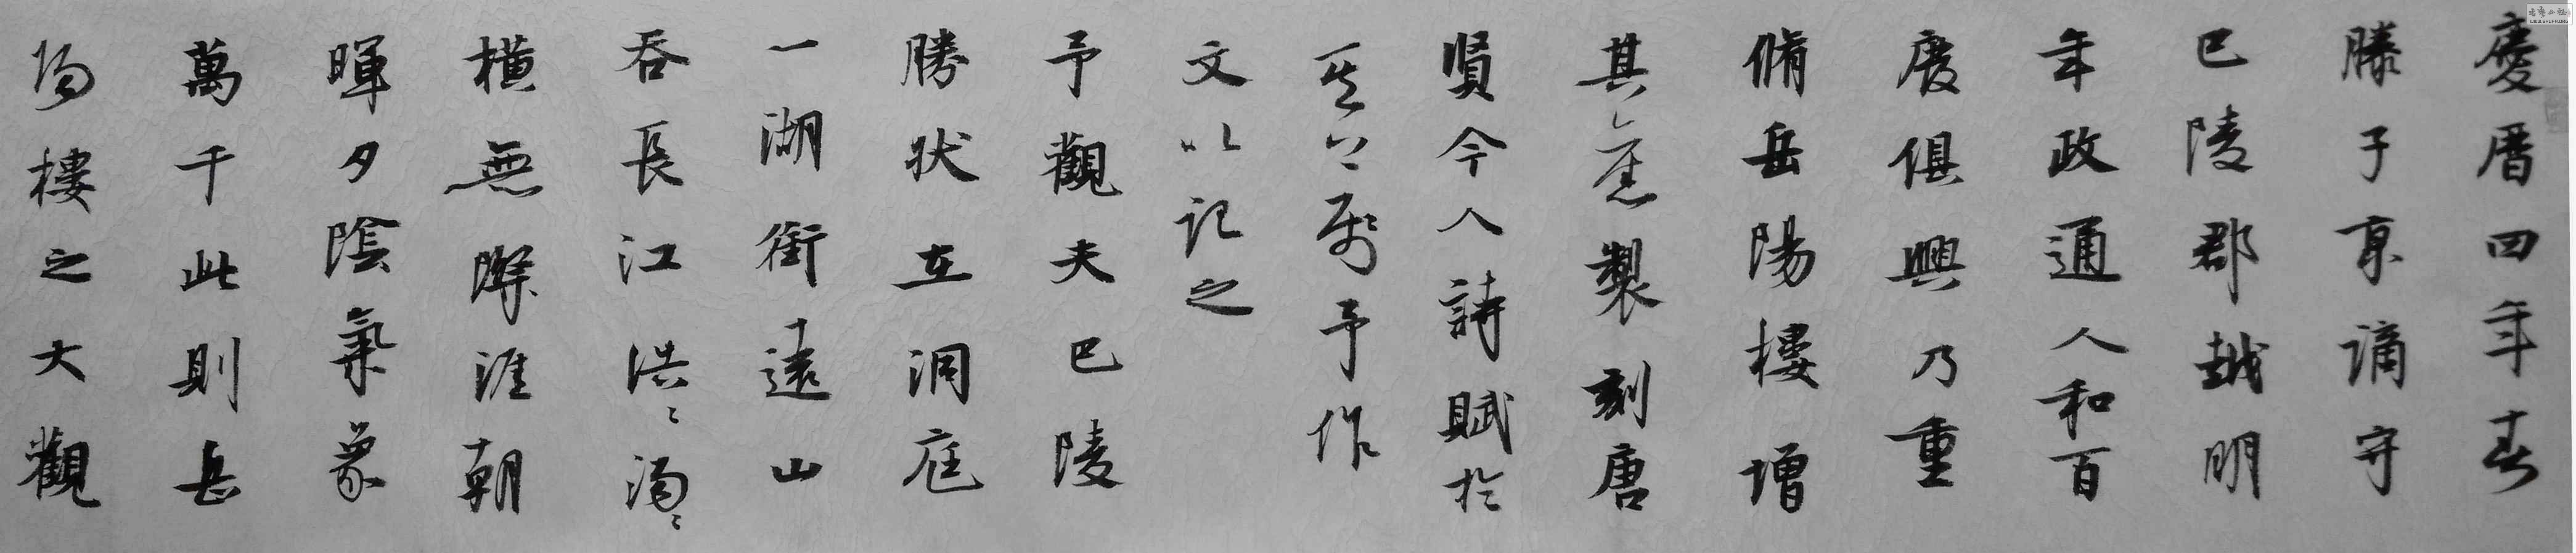 慶曆四年春
滕子京謫守
巴陵郡越明
年政通人和百
廢俱興乃重
脩岳陽樓增
其舊製刻唐
賢今人詩賦於
其上屬予作
文以記之
予觀夫巴陵
勝狀在洞庭
一湖銜遠山
吞長江浩〻湯〻
橫無際涯朝
暉夕陰氣象
萬千此則岳
陽樓之大觀